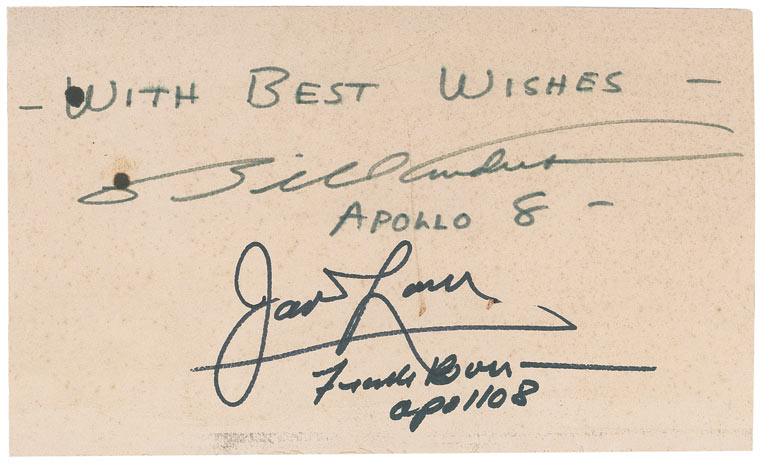 - WITH BEST WISHES -
Bill Anders
APOLLO 8 -
James Lovell
Frank Borman
apollo 8